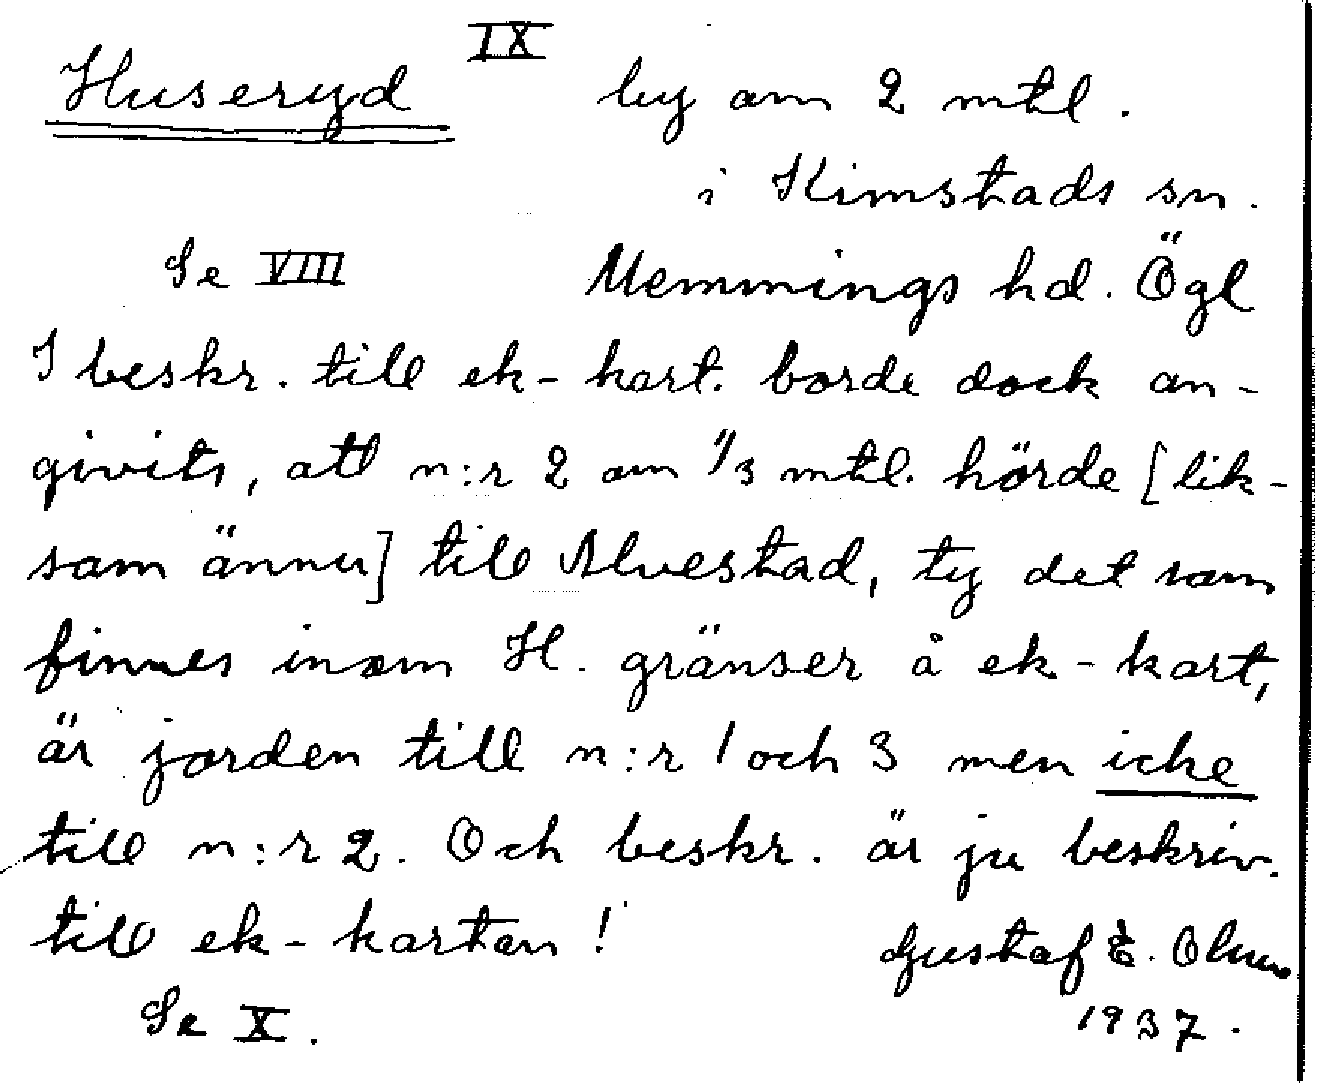 IX
Huseryd by om 2 mtl.
i Kimstads sn.
Se VIII Memmings hd. Ögl
I beskr. till ek-kart. borde dock an-
givits, att n:r 2 om 1/3 mtl. hörde [lik-
som ännu] till Alvestad, ty det som
finnes inom H. gränser å ek-kart,
är jorden till n:r 1 och 3 men icke
till n:r 2. Och beskr. är ju beskriv.
till ek-kartan!
Gustaf E. Olsson
Se X. 1937.